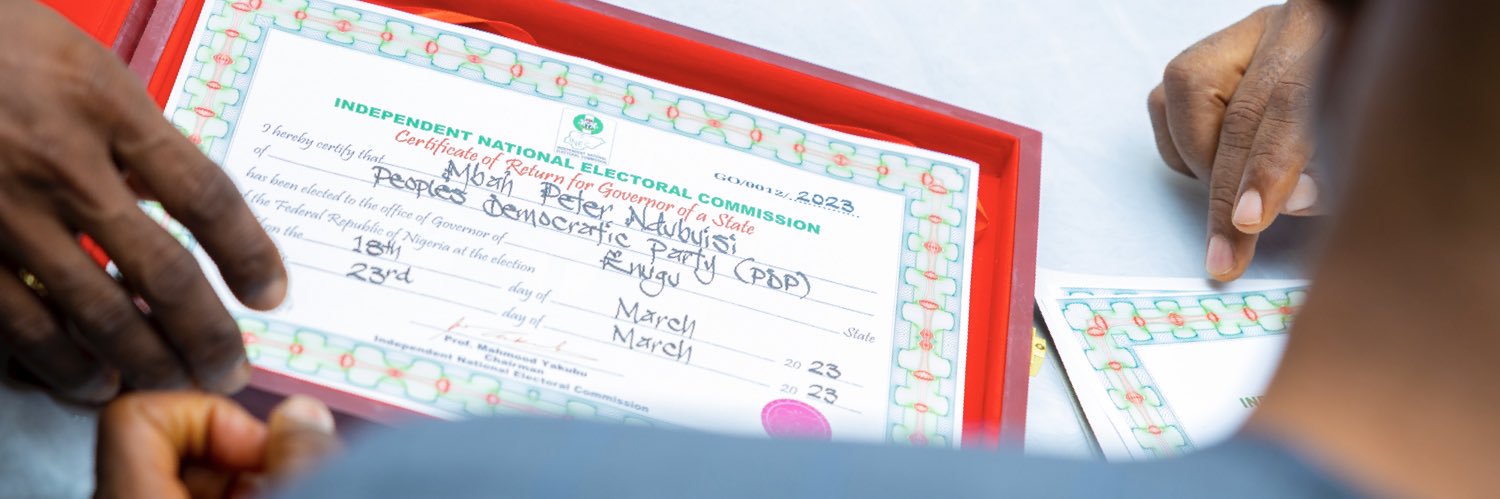 GO/0012/ 2023
INDEPENDENT NATIONAL ELECTORAL COMMISSION
Certificate of Return for Governor of a State
I hereby certify that Mbah Peter Ndubuisi
of Peoples Democratic Party (PDP)
has been elected to the office of Governor of Enugu State
of the Federal Republic of Nigeria at the election
on the 18th day of March 2023
23rd day of March 2023
Prof. Mahmood Yakubu
Chairman
Independent National Electoral Commission